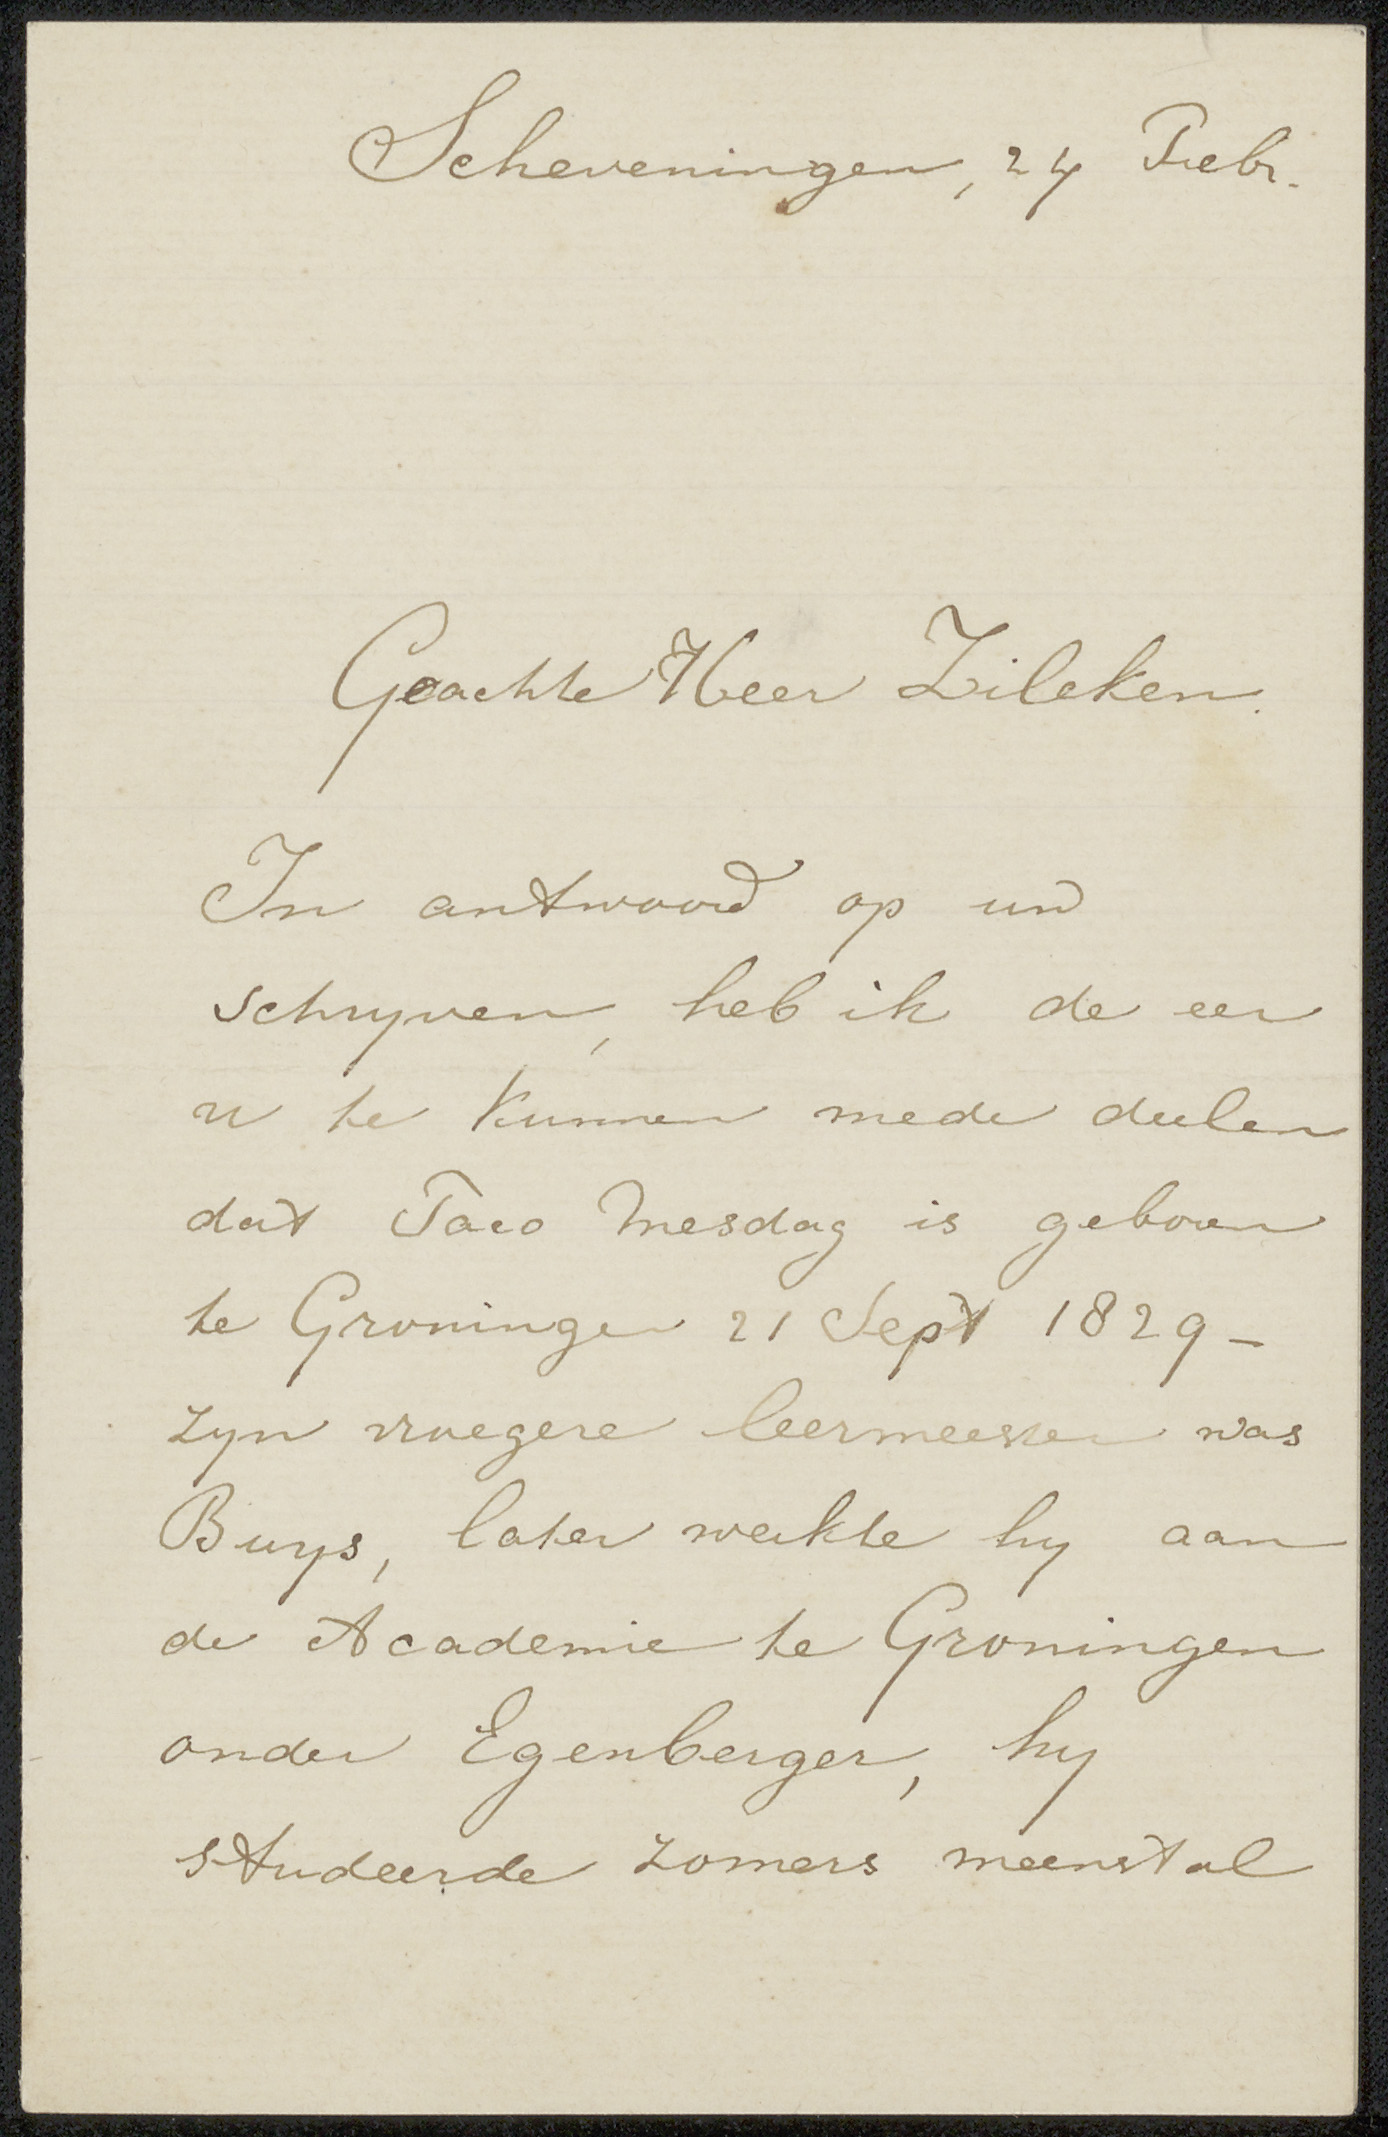 Scheveningen, 24 Febr.
Geachte Heer Zileken.
In antwoord op uw
schryven, heb ik de eer
u te kunnen mede deelen
dat Taco Mesdag is geboren
te Groningen 21 Sept 1829 -
zyn vroegere leermeester was
Buys, later werkte hy aan
de Academie te Groningen
onder Egenberger, hy
studeerde zomers meenstal